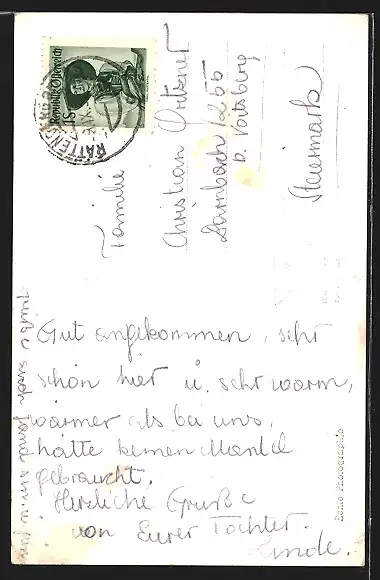 Republik Österreich
1S
RATTEN
Familie
Christian Ortner
Bärnbach 255
b. Voitsberg
Steiermark
Echte Photographie
Gut angekommen, sehr
schön hier u. sehr warm,
wärmer als bei uns,
hätte keinen Mantel
gebraucht.
Herzliche Grüße
von Eurer Tochter
Linde.
Grüße auch